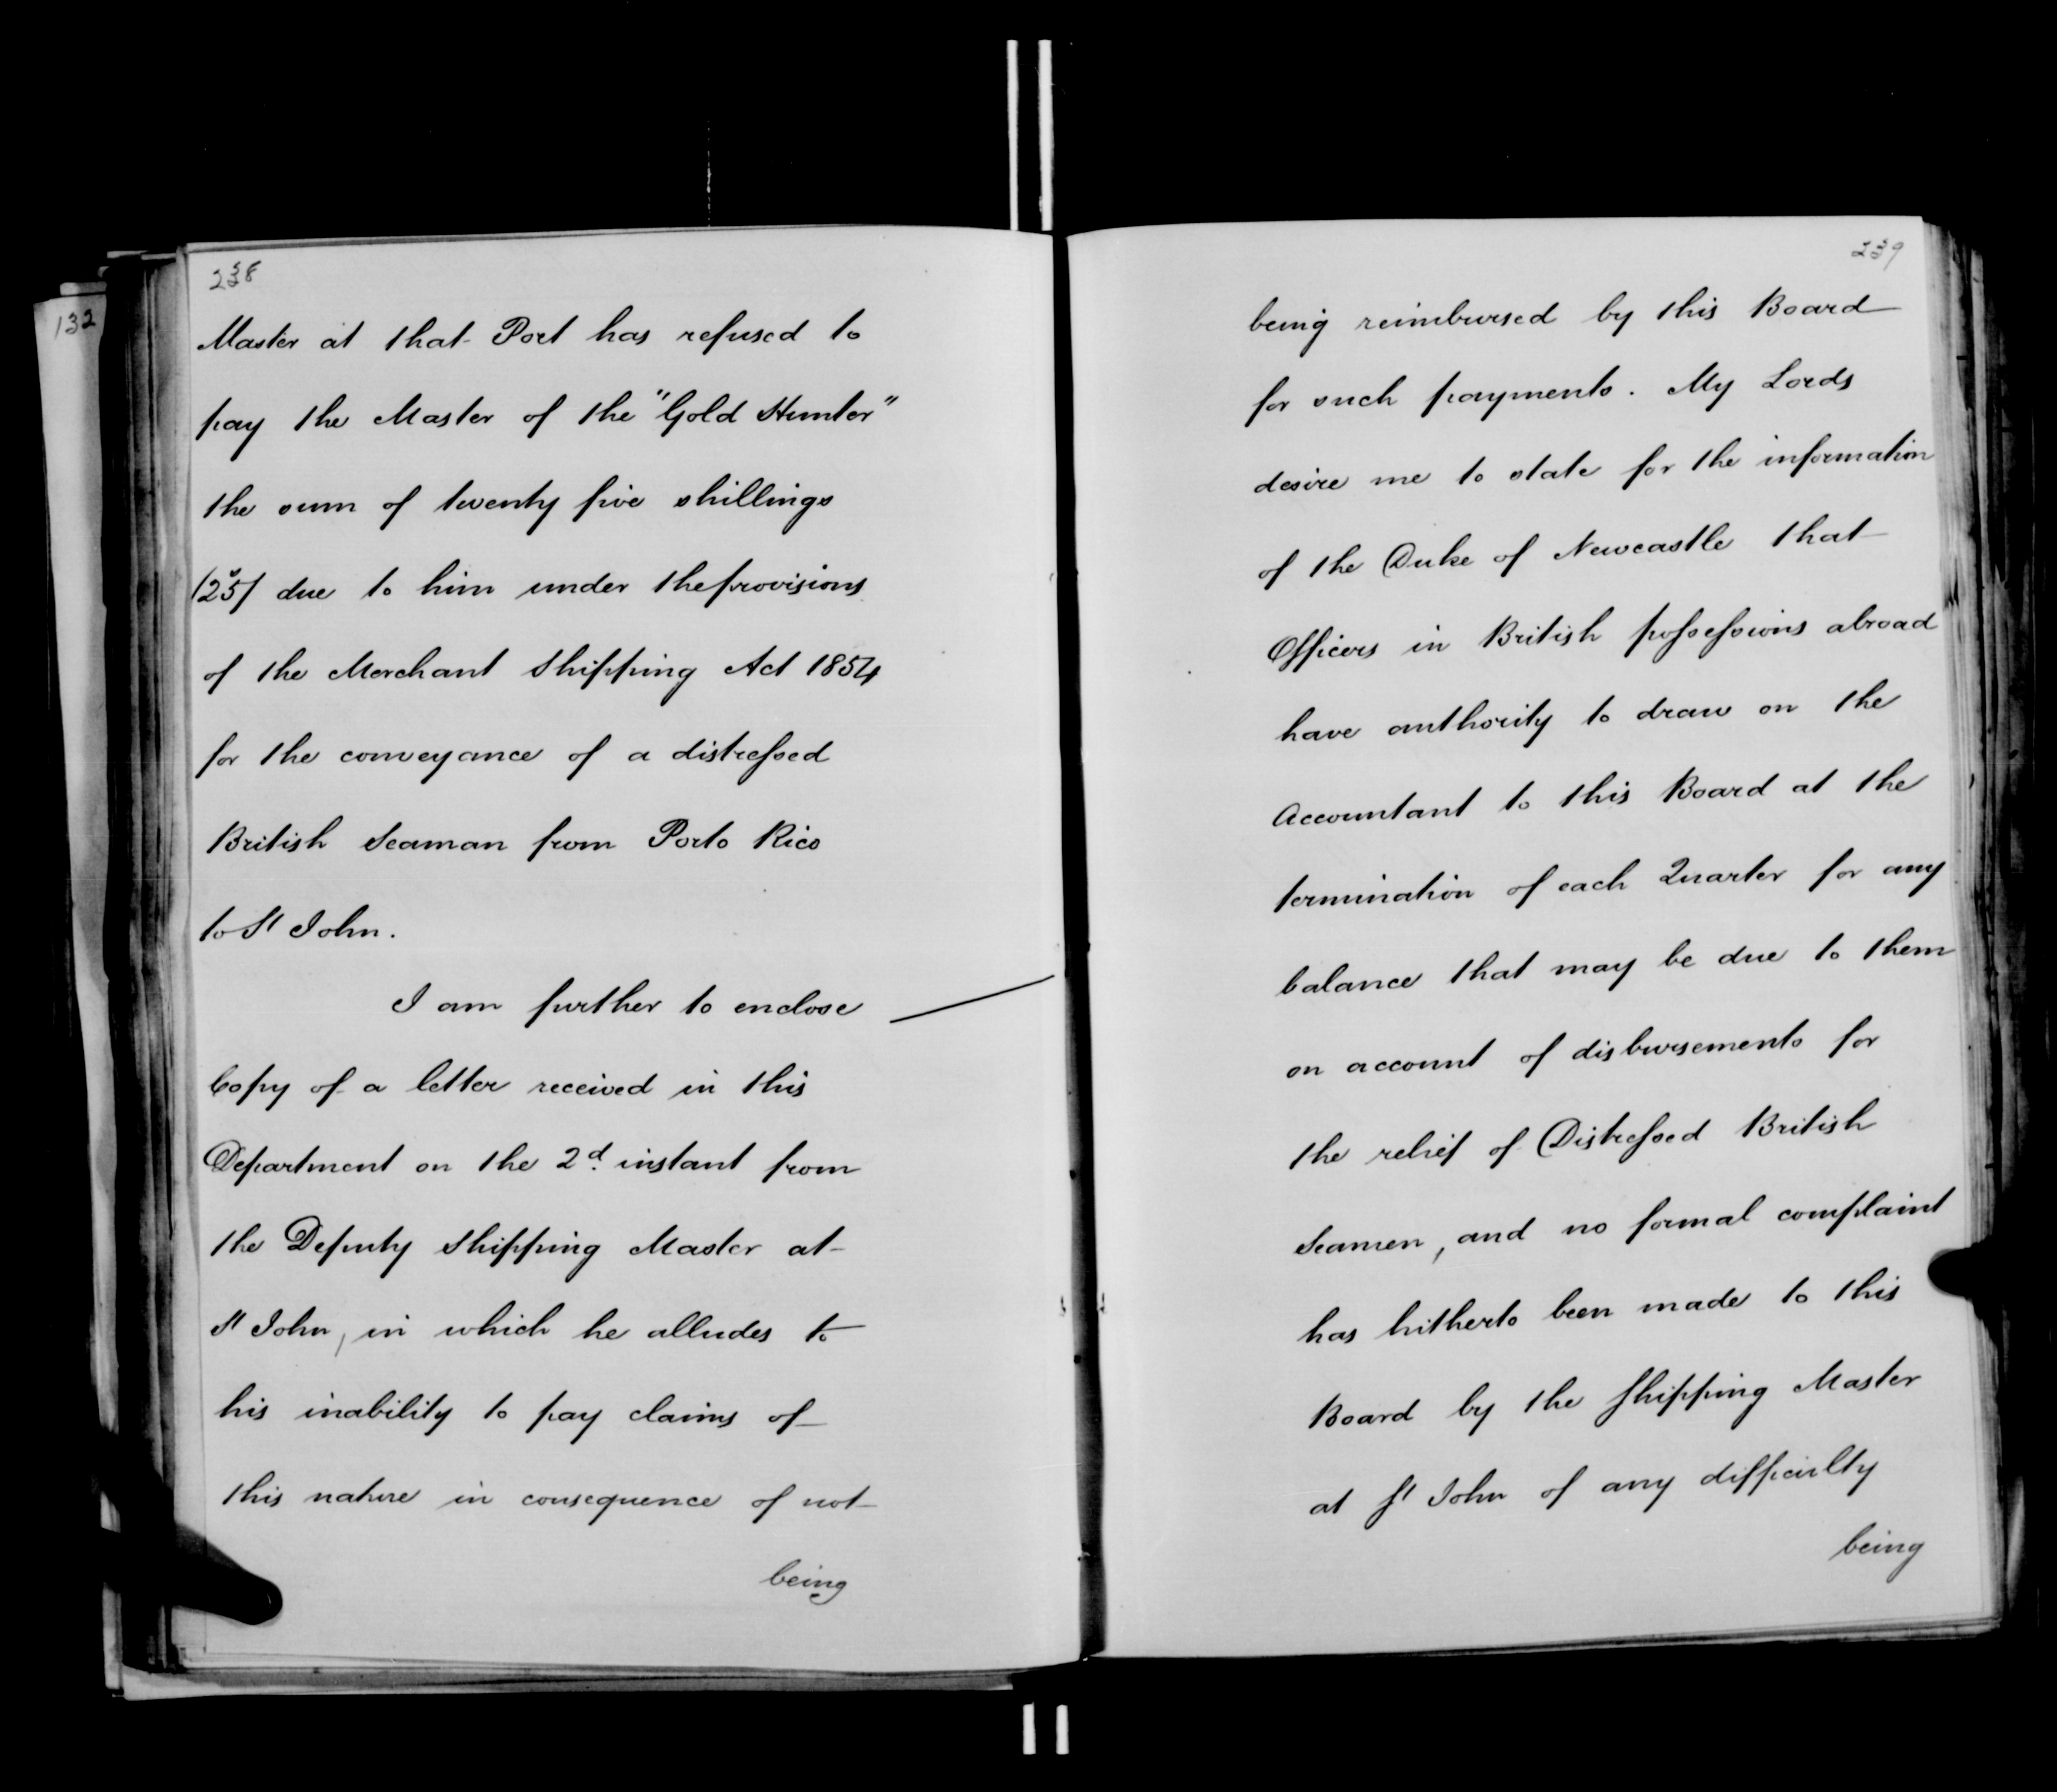 132
238
Master at that Port has refused to
pay the Master of the "Gold Hunter"
the sum of twenty five shillings
(25s) due to him under the provisions
of the Merchant Shipping Act 1854
for the conveyance of a distressed
British Seaman from Porto Rico
to St John.
I am further to enclose
Copy of a letter received in this
Department on the 2d. instant from
the Deputy Shipping Master at
St John, in which he alludes to
his inability to pay claims of
this nature in consequence of not
being
239
being reimbursed by this Board
for such payments. My Lords
desire me to state for the information
of the Duke of Newcastle that
Officers in British possessions abroad
have authority to draw on the
Accountant to this Board at the
termination of each Quarter for any
balance that may be due to them
on account of disbursements for
the relief of Distressed British
Seamen, and no formal complaint
has hitherto been made to this
Board by the Shipping Master
at St John of any difficulty
being